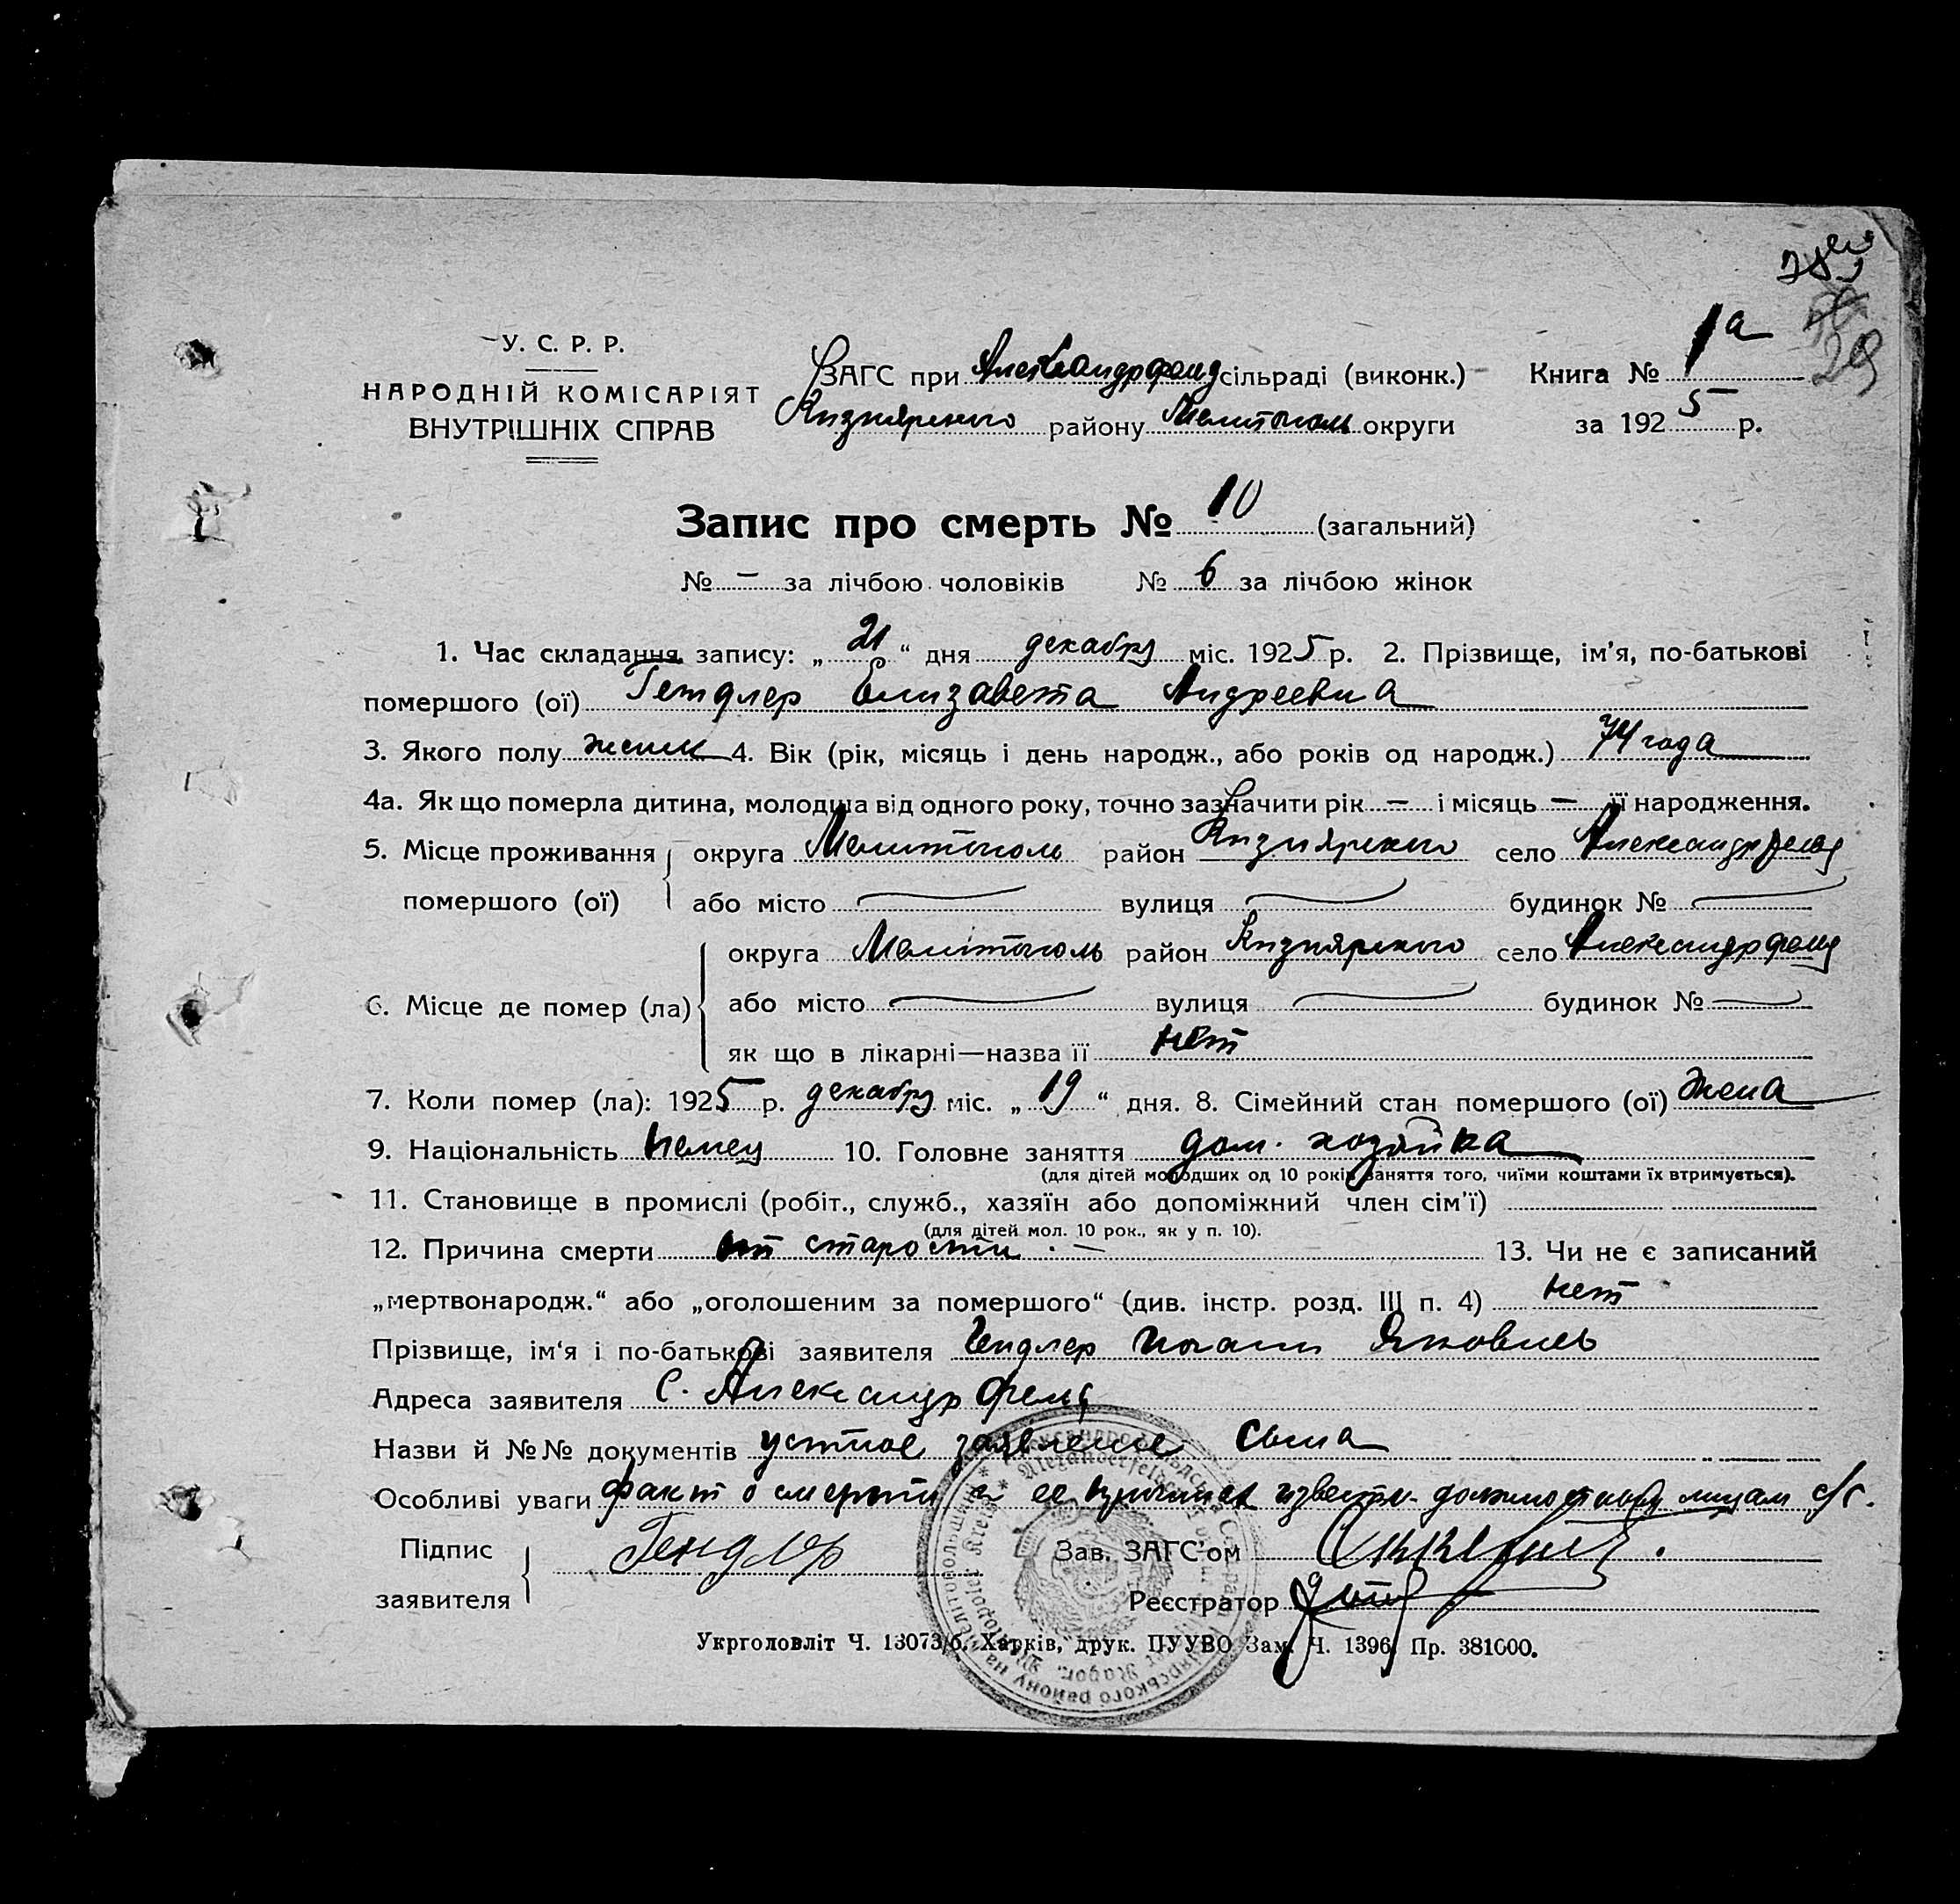 У. С. Р. Р.
НАРОДНІЙ КОМІСАРІЯТ
ВНУТРІШНІХ СПРАВ
ЗАГС при Александрфельд сільраді (виконк.)
Кизиярского району Мелитополь округи
Книга № 1а
за 1925 р.
29
Запис про смерть № 10 (загальний)
№ – за лічбою чоловіків № 6 за лічбою жінок
1. Час складання запису: „21“ дня декабря міс. 1925 р. 2. Прізвище, ім'я, по-батькові
помершого (ої) Гендлер Елизавета Андреевна
3. Якого полу женск 4. Вік (рік, місяць і день народж., або років од народж.) 74 года
4а. Як що померла дитина, молодша від одного року, точно зазначити рік – і місяць – її народження.
5. Місце проживання округа Мелитополь район Кизиярского село Александрфельд
помершого (ої) або місто вулиця будинок №
округа Мелитополь район Кизиярского село Александрфельд
6. Місце де помер (ла) або місто вулиця будинок №
як що в лікарні—назва її нет
7. Коли помер (ла): 1925 р. декабря міс. „19“ дня. 8. Сімейний стан помершого (ої) жена
9. Національність немец 10. Головне заняття дом. хозяйка
(для дітей молодших од 10 років заняття того, чиїми коштами їх втримується).
11. Становище в промислі (робіт., служб., хазяїн або допоміжний член сім'ї)
(для дітей мол. 10 рок., як у п. 10).
12. Причина смерти от старости. – 13. Чи не є записаний
„мертвонародж.“ або „оголошеним за помершого“ (див. інстр. розд. III п. 4) нет
Прізвище, ім'я і по-батькові заявителя Гендлер Иоганн Яковлев
Адреса заявителя С. Александрфельд
Назви й №№ документів устное заявление сына
Особливі уваги факт о смерти и ее причинах известн. должностным лицам с/с.
Підпис
заявителя Гендлер
Зав. ЗАГС'ом
Реєстратор
Укрголовліт Ч. 13073/б. Харків, друк. ПУУВО Зам. Ч. 1396. Пр. 381000.